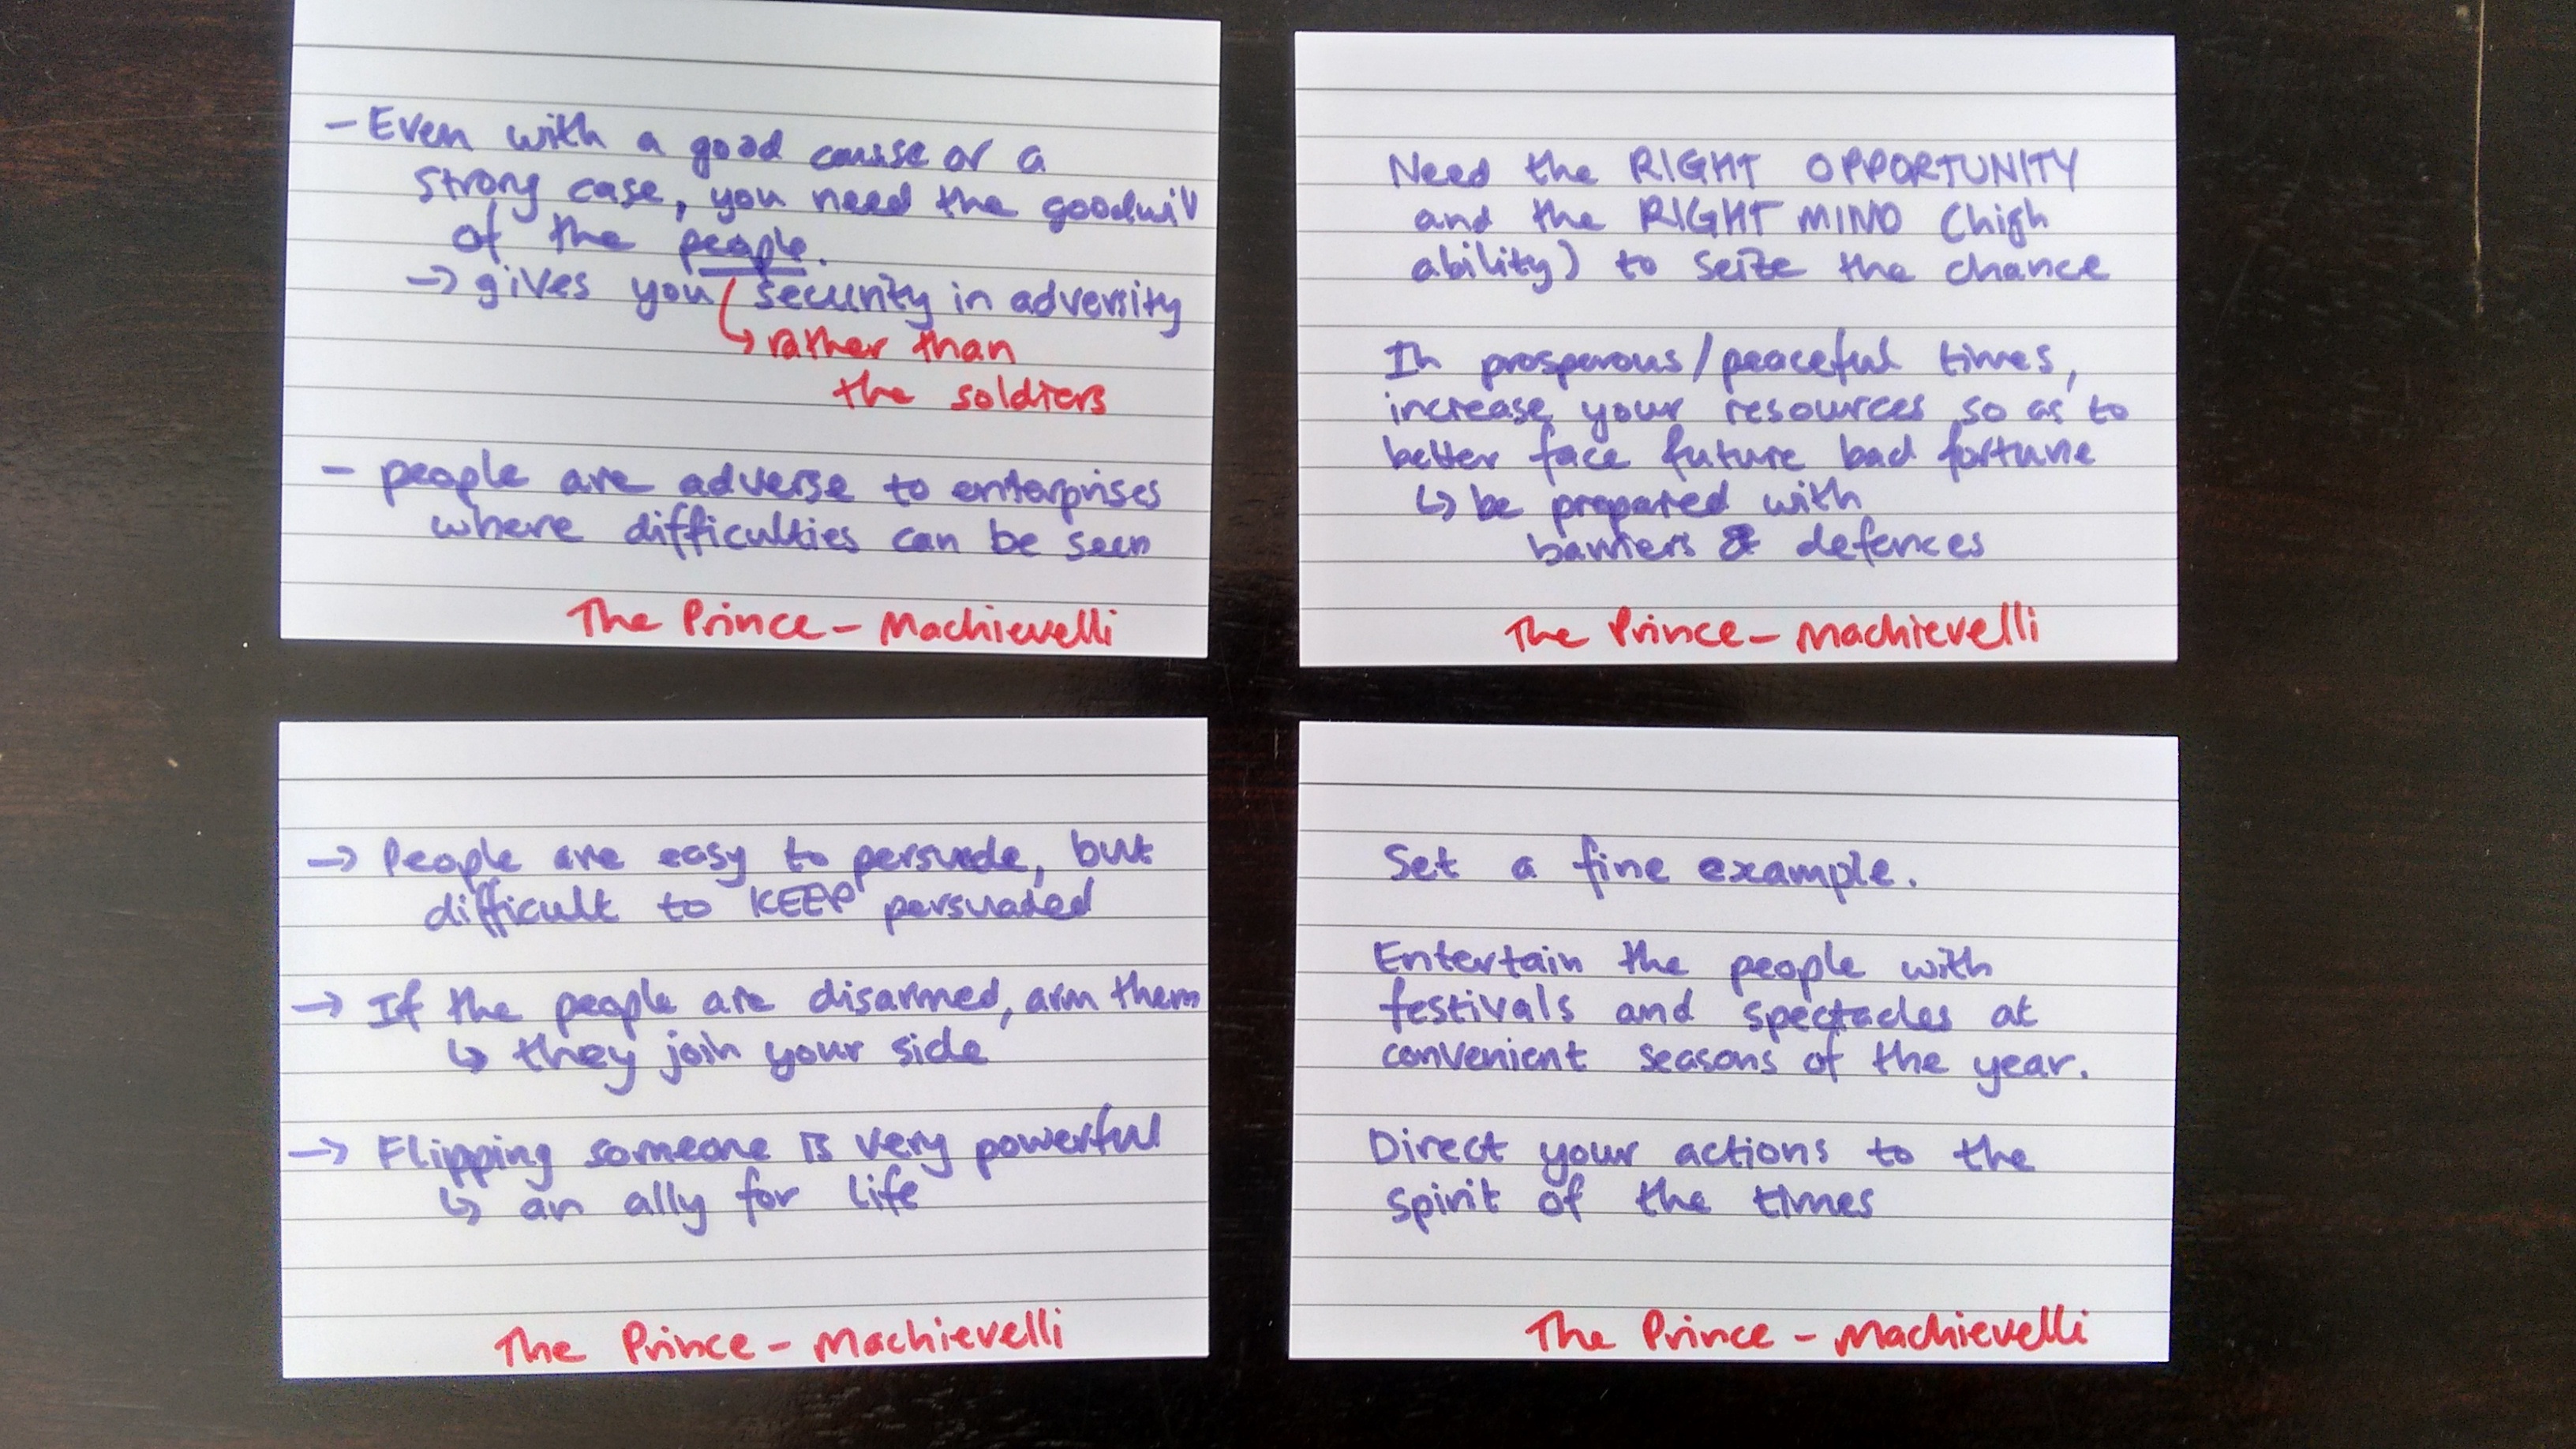 - Even with a good cause or a
strong case, you need the goodwill
of the people.
→ gives you security in adversity
↳ rather than
the soldiers
- people are adverse to enterprises
where difficulties can be seen
The Prince - Machievelli
Need the RIGHT OPPORTUNITY
and the RIGHT MIND (high
ability) to seize the chance
In prosperous/peaceful times,
increase your resources so as to
better face future bad fortune
↳ be prepared with
barriers & defences
The Prince - Machievelli
→ People are easy to persuade, but
difficult to KEEP persuaded
→ If the people are disarmed, arm them
↳ they join your side
→ Flipping someone is very powerful
↳ an ally for life
The Prince - Machievelli
Set a fine example.
Entertain the people with
festivals and spectacles at
convenient seasons of the year.
Direct your actions to the
spirit of the times
The Prince - Machievelli